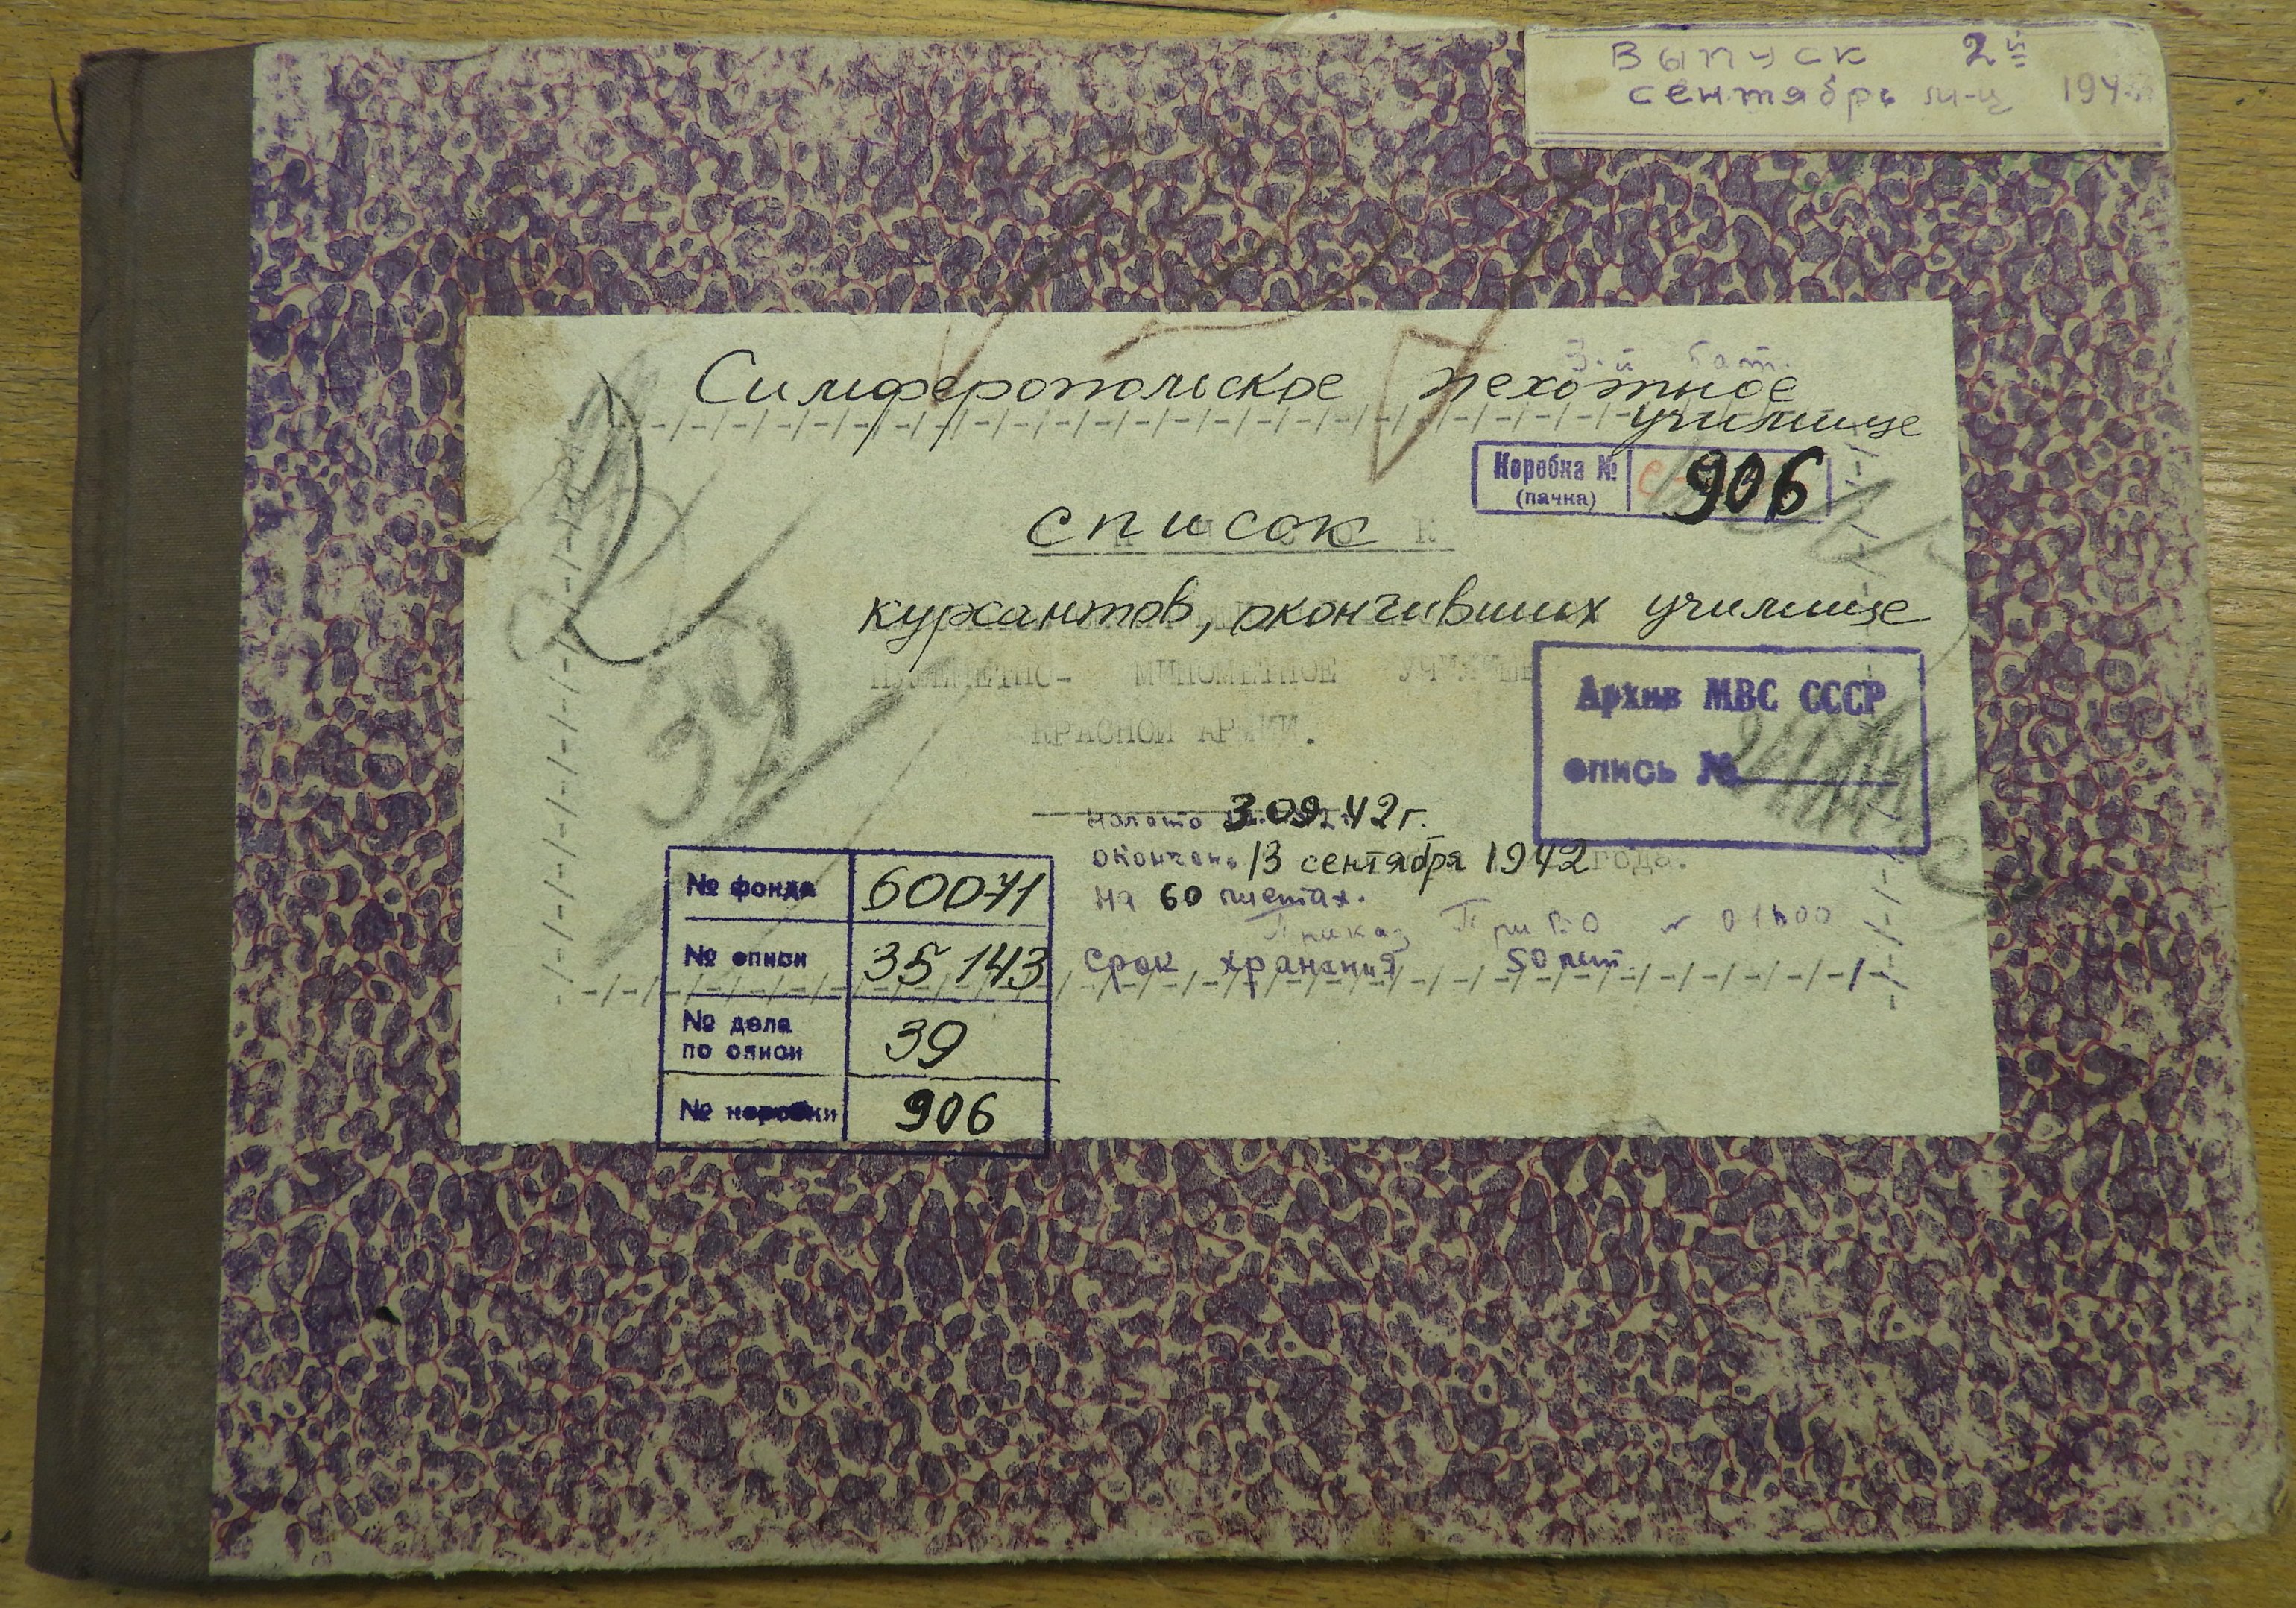 Выпуск 2й
сентябрь м-ц 194
3-й бат.
Симферопольское пехотное
училище
Коробка № 906
(пачка)
список
курсантов, окончивших училище
ПУЛЕМЕТНО- МИНОМЕТНОЕ УЧИЛИЩЕ
КРАСНОЙ АРМИИ.
Архив МВС СССР
опись №
Начато 3.09.42г.
Окончен. 13 сентября 1942 года.
На 60 листах.
Приказ ПриВО
Срок хранения 50 лет.
№ фонда 60071
№ описи 35143
№ дела
по описи 39
№ коробки 906